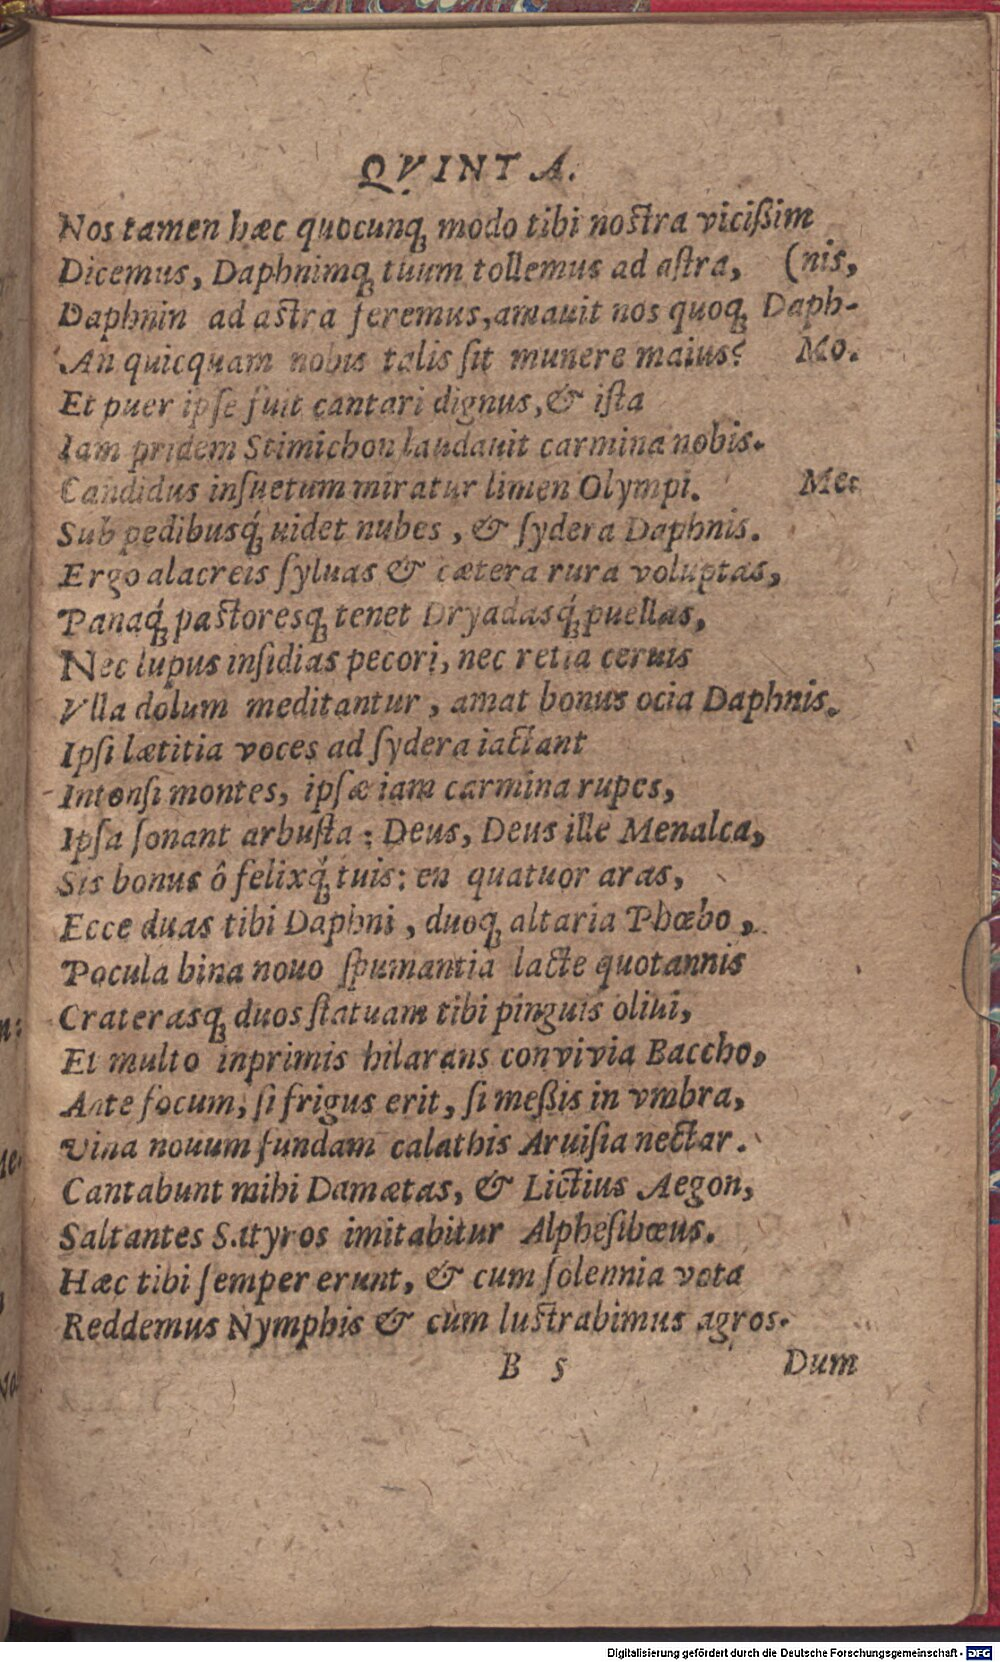 QVINTA.
Nos tamen hæc quocunq; modo tibi nostra vicißim
Dicemus, Daphnimq; tuum tollemus ad astra, (nis,
Daphnin ad astra feremus, amauit nos quoq; Daph-
An quicquam nobis talis sit munere maius? Mo.
Et puer ipse fuit cantari dignus, & ista
Iam pridem Stimichon laudauit carmina nobis.
Candidus insuetum miratur limen Olympi. Me.
Sub pedibusq́; uidet nubes, & sydera Daphnis.
Ergo alacreis syluas & cætera rura voluptas,
Panaq́; pastoresq; tenet Dryadasq́; puellas,
Nec lupus insidias pecori, nec retia ceruis
Vlla dolum meditantur, amat bonus ocia Daphnis.
Ipsi lætitia voces ad sydera iactant
Intonsi montes, ipsæ iam carmina rupes,
Ipsa sonant arbusta: Deus, Deus ille Menalca,
Sis bonus ô felixq́; tuis: en quatuor aras,
Ecce duas tibi Daphni, duoq; altaria Phœbo,
Pocula bina nouo spumantia lacte quotannis
Craterasq; duos statuam tibi pinguis oliui,
Et multo inprimis hilarans convivia Baccho,
Ante focum, si frigus erit, si meßis in vmbra,
Vina nouum fundam calathis Aruisia nectar.
Cantabunt mihi Damætas, & Lictius Aegon,
Saltantes Satyros imitabitur Alphesibœus.
Hæc tibi semper erunt, & cum solennia vota
Reddemus Nymphis & cùm lustrabimus agros.
B 5 Dum
Digitalisierung gefördert durch die Deutsche Forschungsgemeinschaft - DFG